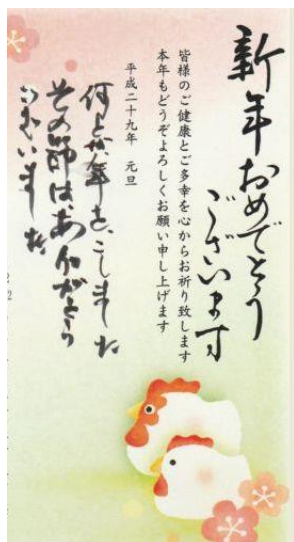 新年おめでとう
ございます
皆様のご健康とご多幸を心からお祈り致します
本年もどうぞよろしくお願い申し上げます
平成二十九年 元旦
何とか年を、こしました
その節は、ありがとう
ございました